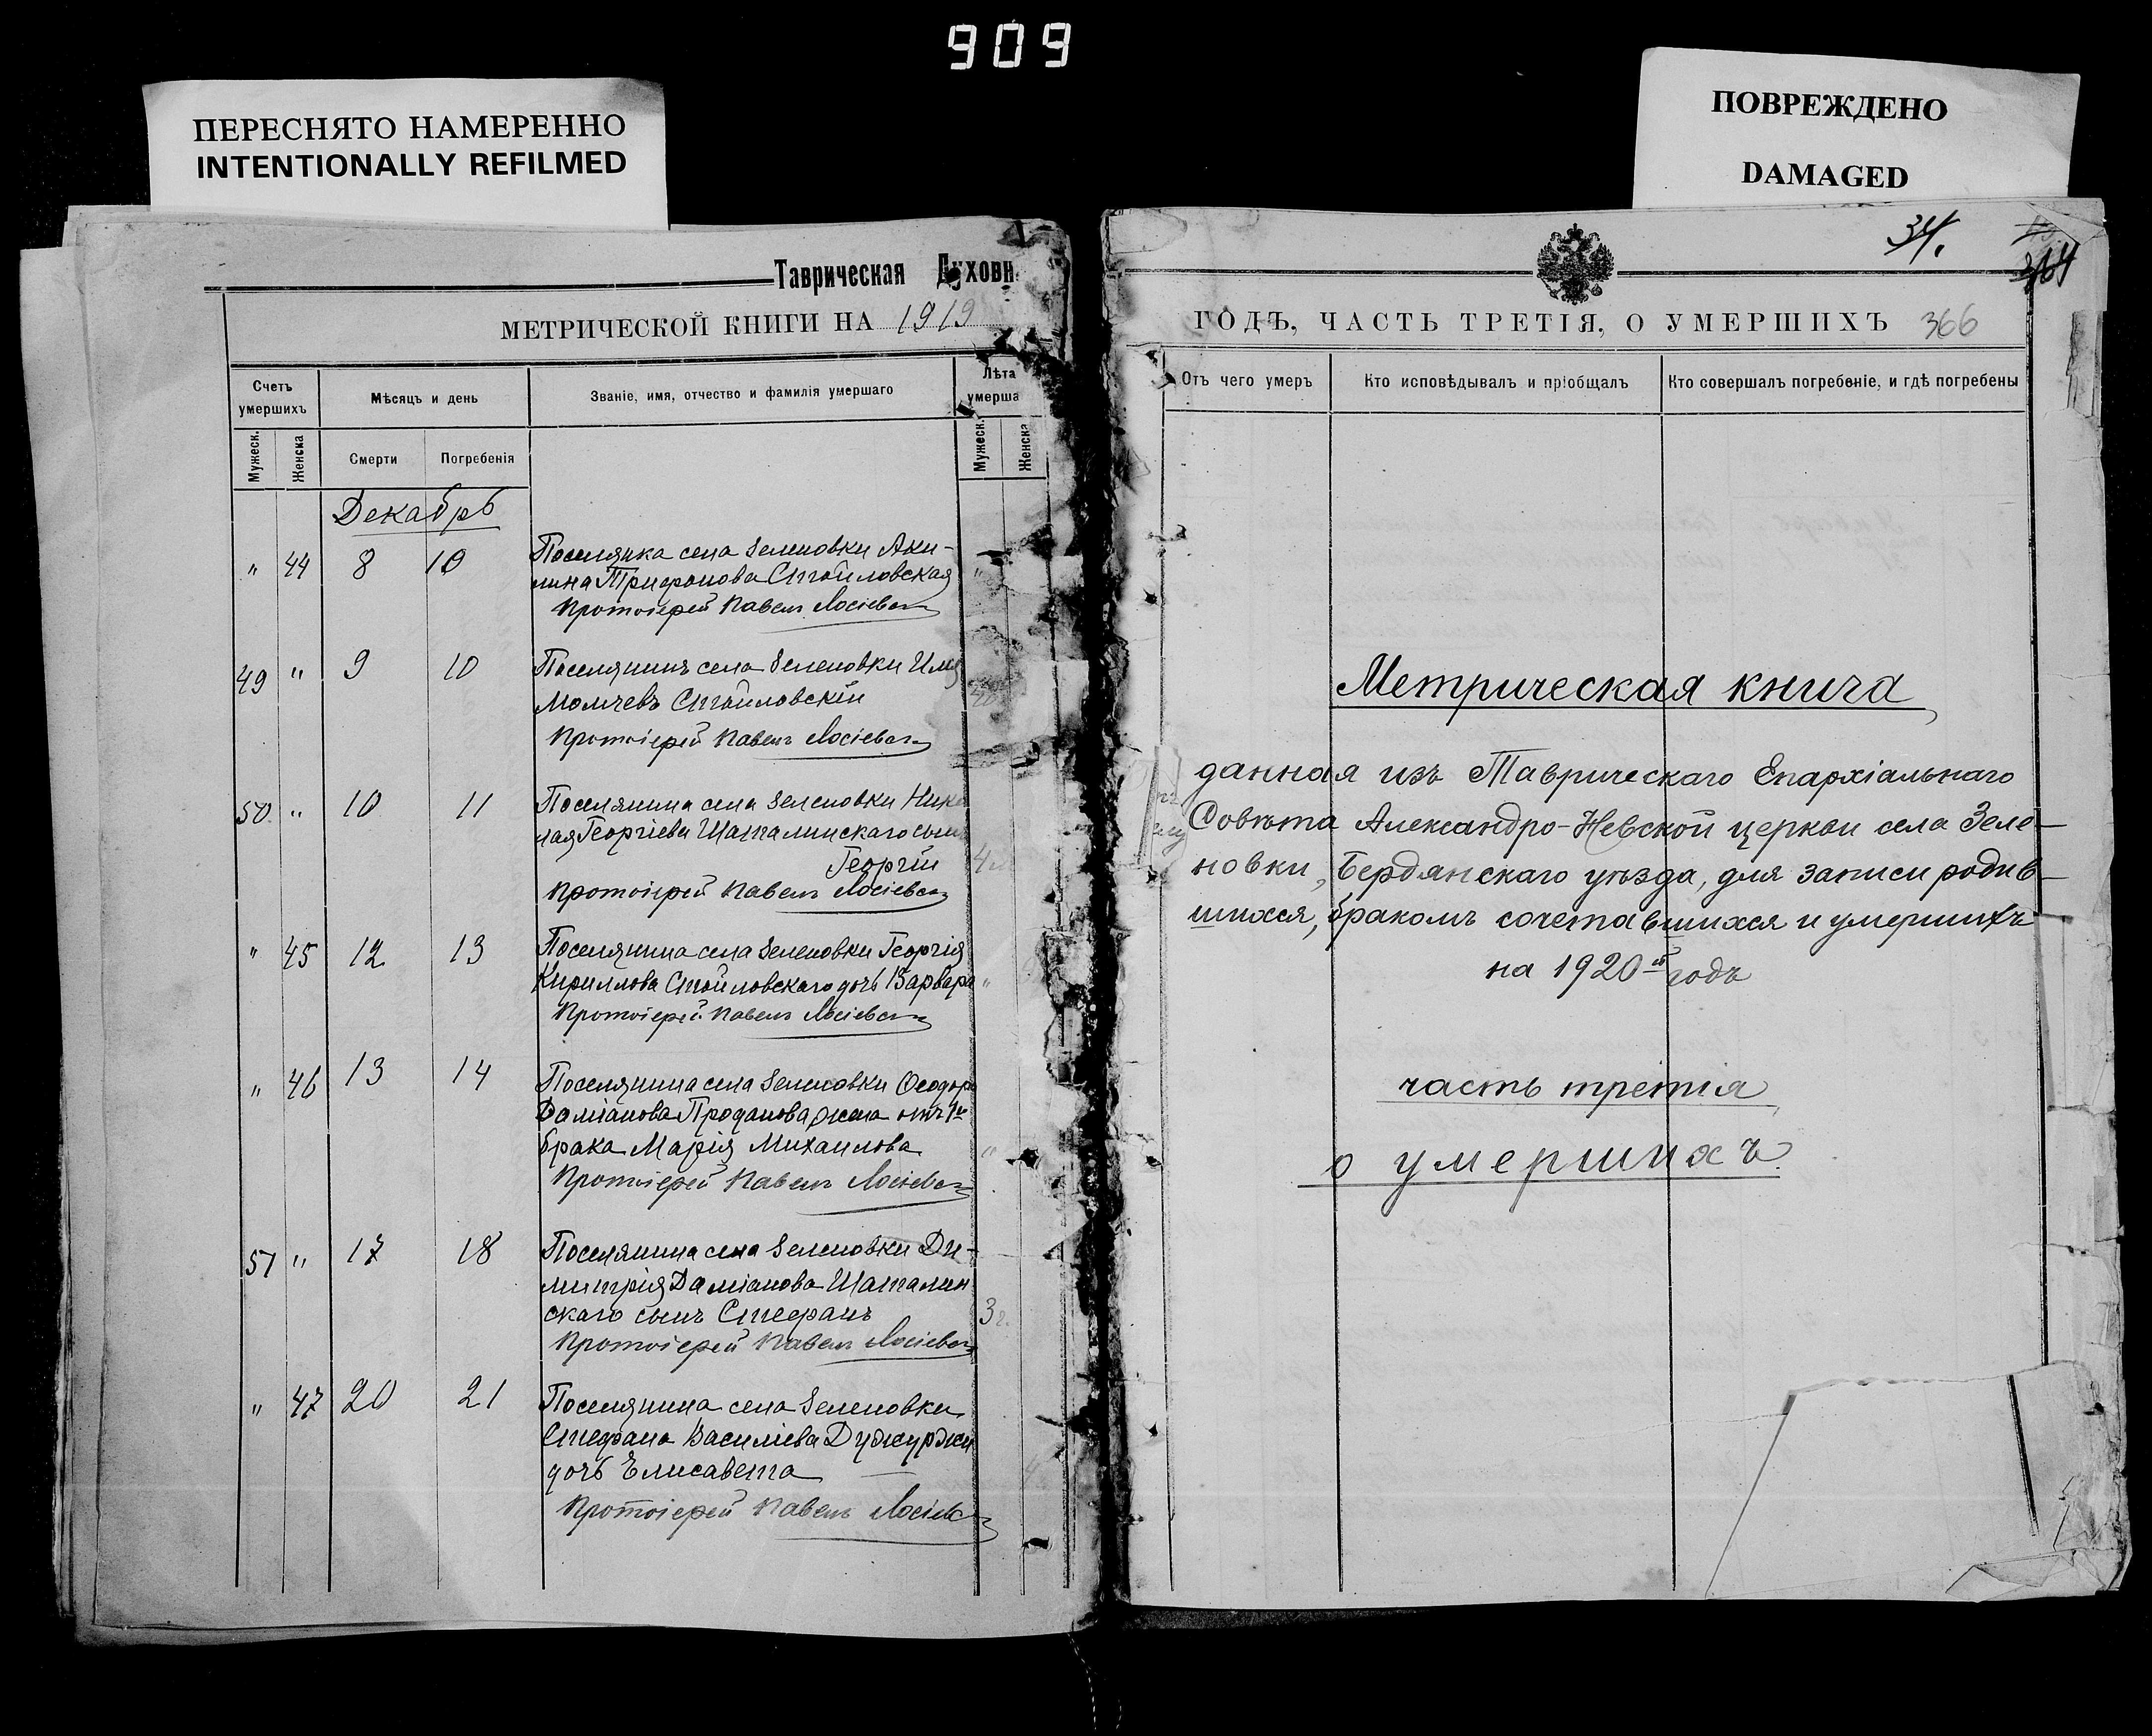 909
ПЕРЕСНЯТО НАМЕРЕННО
INTENTIONALLY REFILMED
ПОВРЕЖДЕНО
DAMAGED
Таврическая Духовн
МЕТРИЧЕСКОЙ КНИГИ НА 1919
Счетъ умершихъ
Мѣсяцъ и день
Званіе, имя, отчество и фамилія умершаго
Лѣта умерша
Мужеск.
Женска
Смерти
Погребенія
Мужеск.
Женска
Декабрь
" 44 8 10 Поселянка села Зеленовки Аки-
лина Трифонова Стойловская "
Протоіерей Павелъ Лосіевскій
49 " 9 10 Поселянинъ села Зеленовки Илія
Момчевъ Стойловскій
Протоіерей Павелъ Лосіевскій
50 " 10 11 Поселянина села Зеленовки Нико
лая Георгіева Шаталинскаго сынъ
Георгій 4
Протоіерей Павелъ Лосіевскій
" 45 12 13 Поселянина села Зеленовки Георгія
Кириллова Стойловскаго дочь Варвара "
Протоіерей Павелъ Лосіевскій
" 46 13 14 Поселянина села Зеленовки Ѳеодора
Даміанова Проданова, жена отъ 1го
брака Марія Михаилова "
Протоіерей Павелъ Лосіевскій
51 " 17 18 Поселянина села Зеленовки Ди-
митрія Даміанова Шаталин
скаго сынъ Стефанъ 3 г.
Протоіерей Павелъ Лосіевскій
" 47 20 21 Поселянина села Зеленовки
Стефана Василіева Дуджурджи
дочь Елисавета
Протоіерей Павелъ Лосіевскій
34.
364
ГОДЪ, ЧАСТЬ ТРЕТІЯ, О УМЕРШИХЪ 366
Отъ чего умеръ
Кто исповѣдывалъ и пріобщалъ
Кто совершалъ погребеніе, и гдѣ погребены
Метрическая книга
данная изъ Таврическаго Епархіальнаго
Совѣта Александро-Невской церкви села Зеле-
новки, Бердянскаго уѣзда, для записи родив-
шихся, бракомъ сочетавшихся и умершихъ
на 1920-й годъ
часть третія
о умершихъ